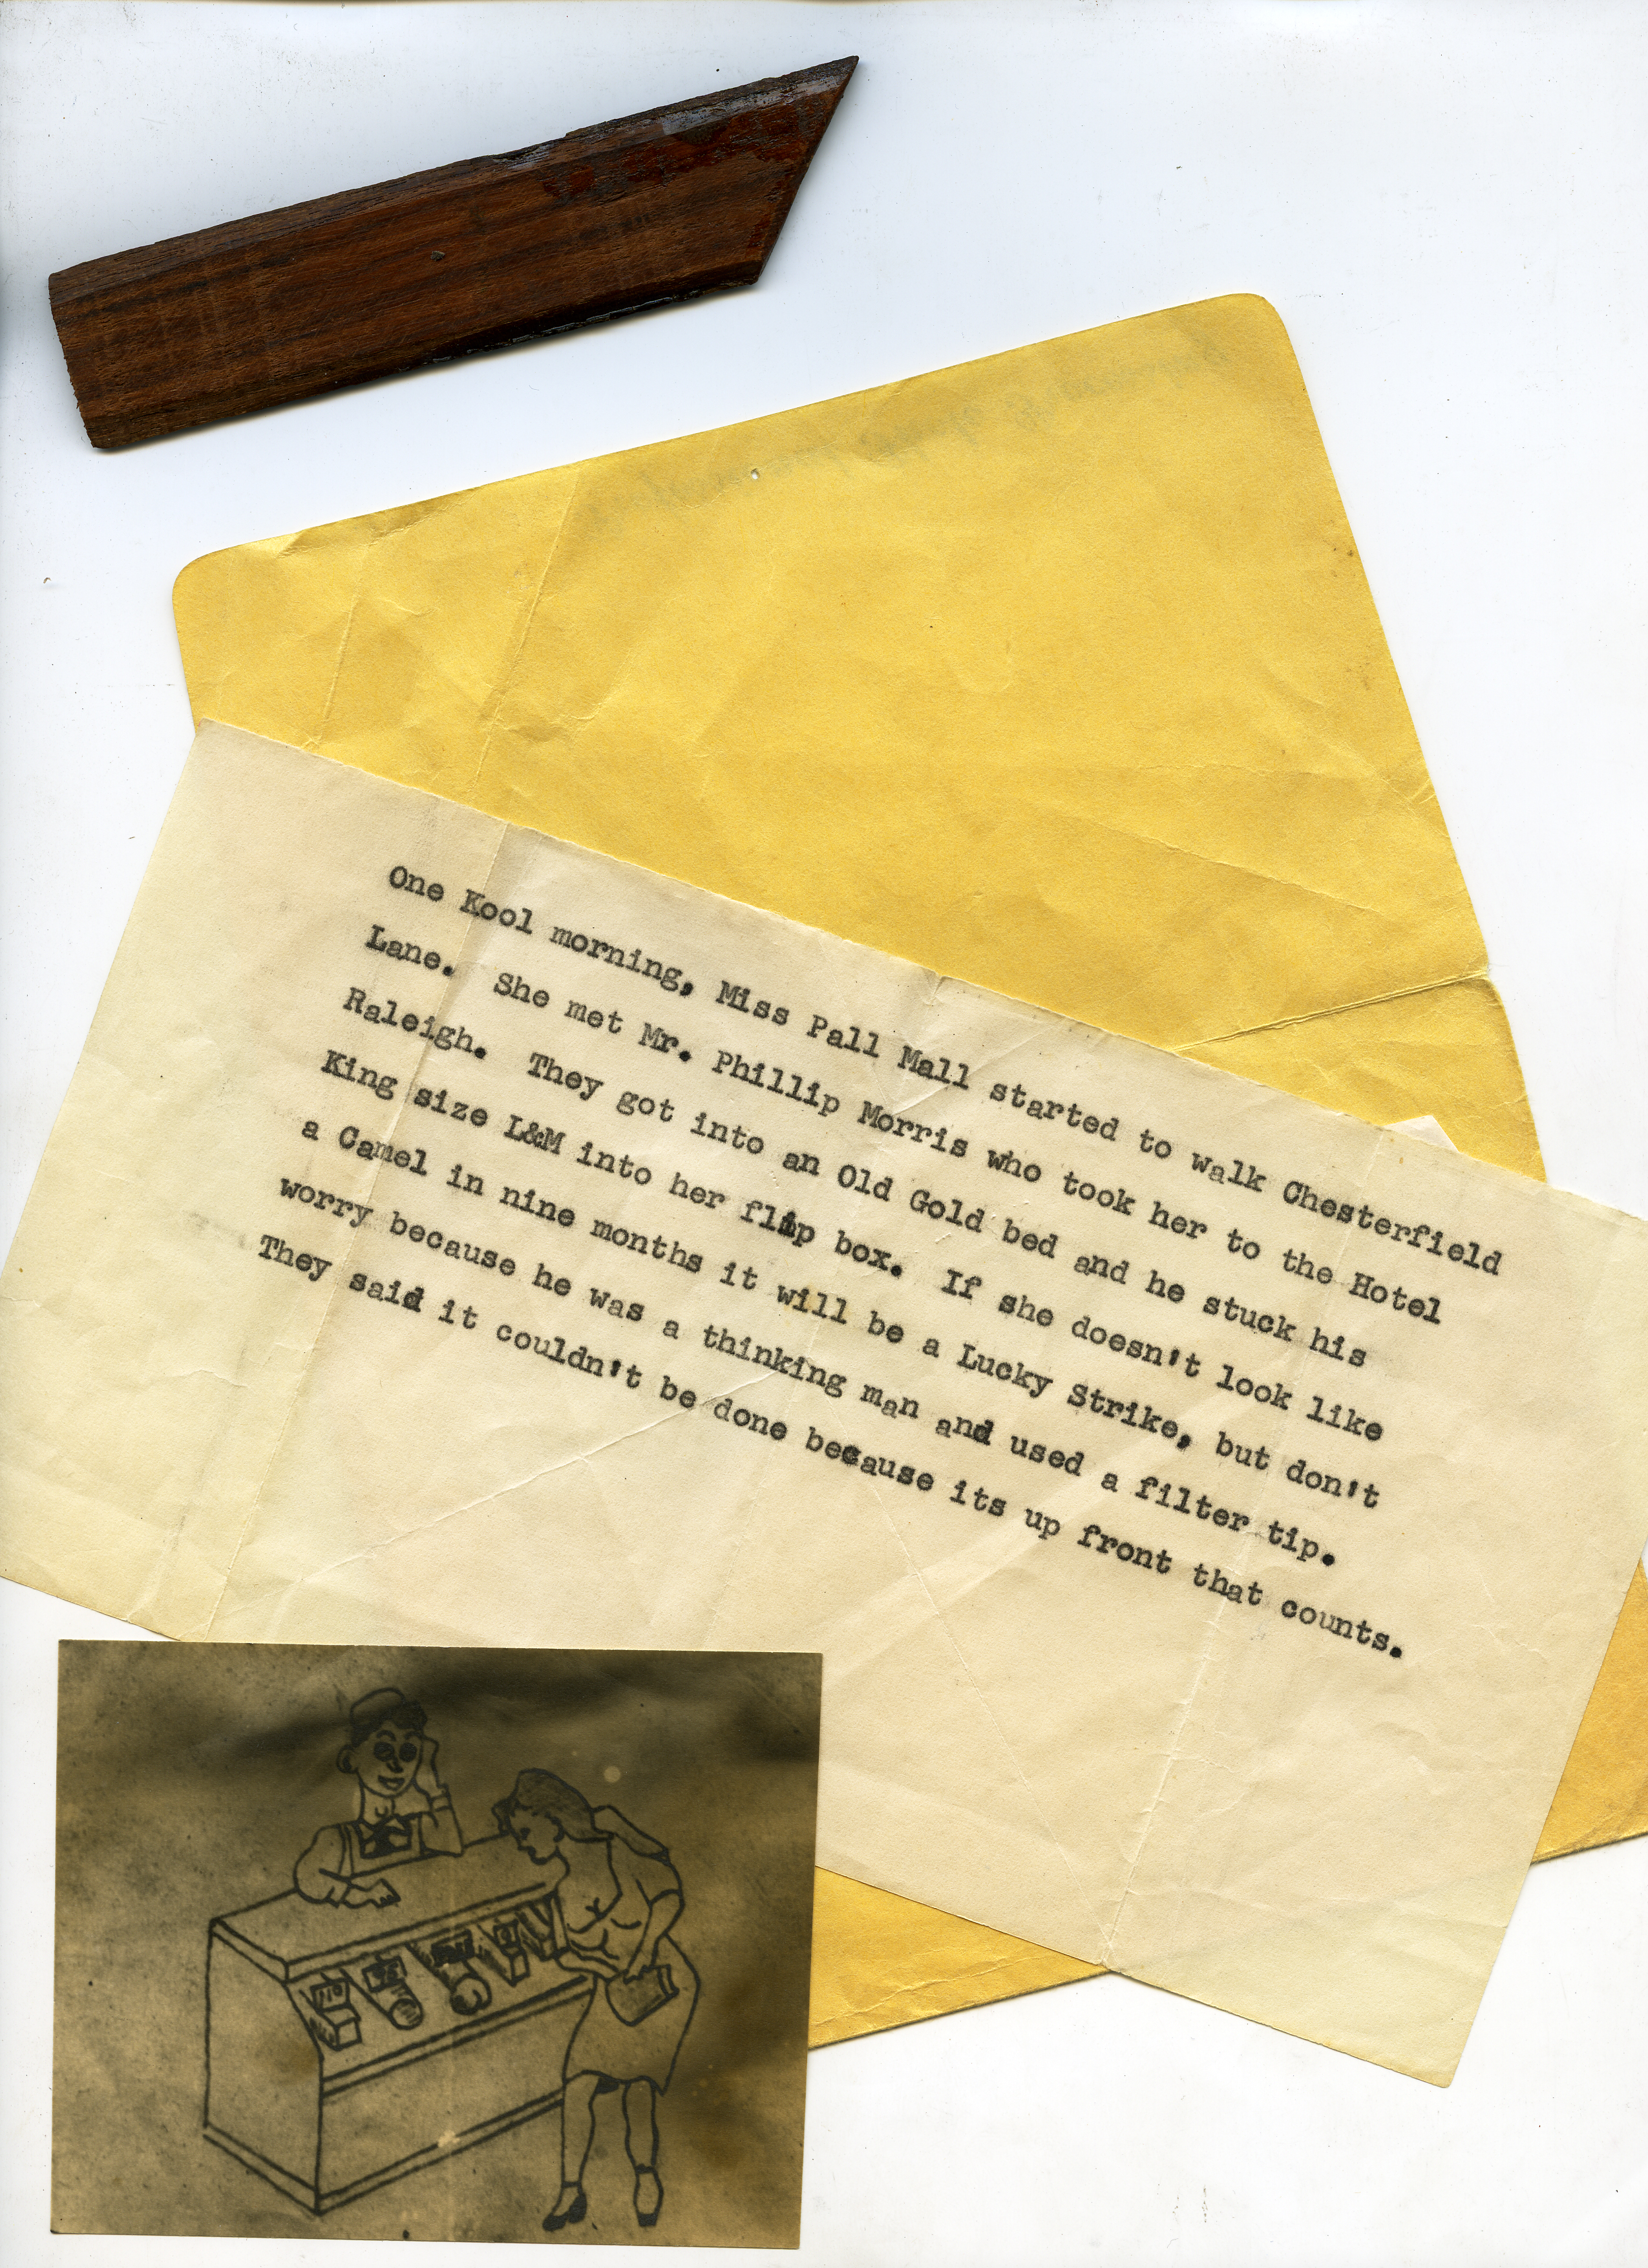 One Kool morning, Miss Pall Mall started to walk Chesterfield
Lane. She met Mr. Phillip Morris who took her to the Hotel
Raleigh. They got into an Old Gold bed and he stuck his
King size L&M into her flip box. If she doesn't look like
a Camel in nine months it will be a Lucky Strike, but don't
worry because he was a thinking man and used a filter tip.
They said it couldn't be done because its up front that counts.